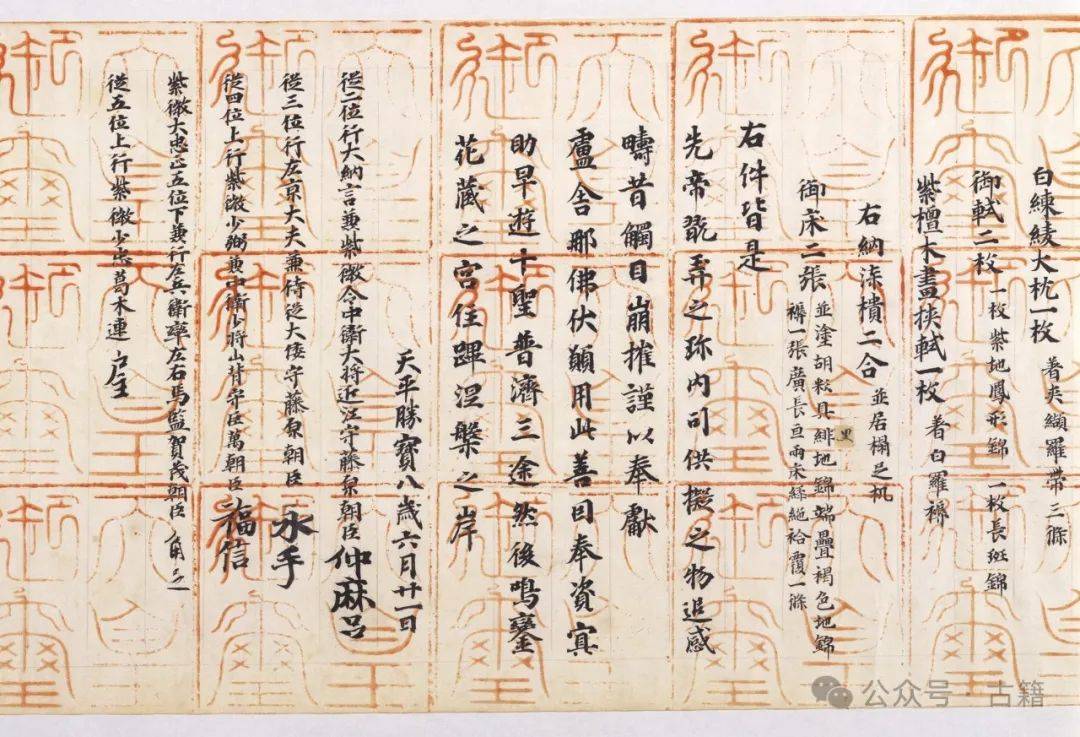 白練綾大枕一枚 著夾纈羅帶三條
御軾二枚 一枚紫地鳳形錦 一枚長斑錦
紫檀木畫挾軾一枚 著白羅褥
右納漆樻二合 並居榻足机
御床二張 並塗胡粉具緋地錦端疊褐色地錦
里
褥一張廣長亘兩床緑絁袷覆一條
右件皆是
先帝翫弄之珎内司供擬之物追感
疇昔觸目崩摧謹以奉獻
盧舍那佛伏願用此善因奉資冥
助早遊十聖普濟三途然後鳴鑾
花藏之宮住蹕涅槃之岸
天平勝寶八歲六月廿一日
從二位行大納言兼紫微令中衛大將近江守藤原朝臣 仲麻呂
從三位行左京大夫兼侍從大倭守藤原朝臣 永手
從四位上行紫微少弼兼中衛少將山背守巨萬朝臣 福信
紫微大忠正五位下兼行左兵衛率左右馬監賀茂朝臣 角足
從五位上行紫微少忠葛木連 戶主
天皇御璽
公众号 古籍